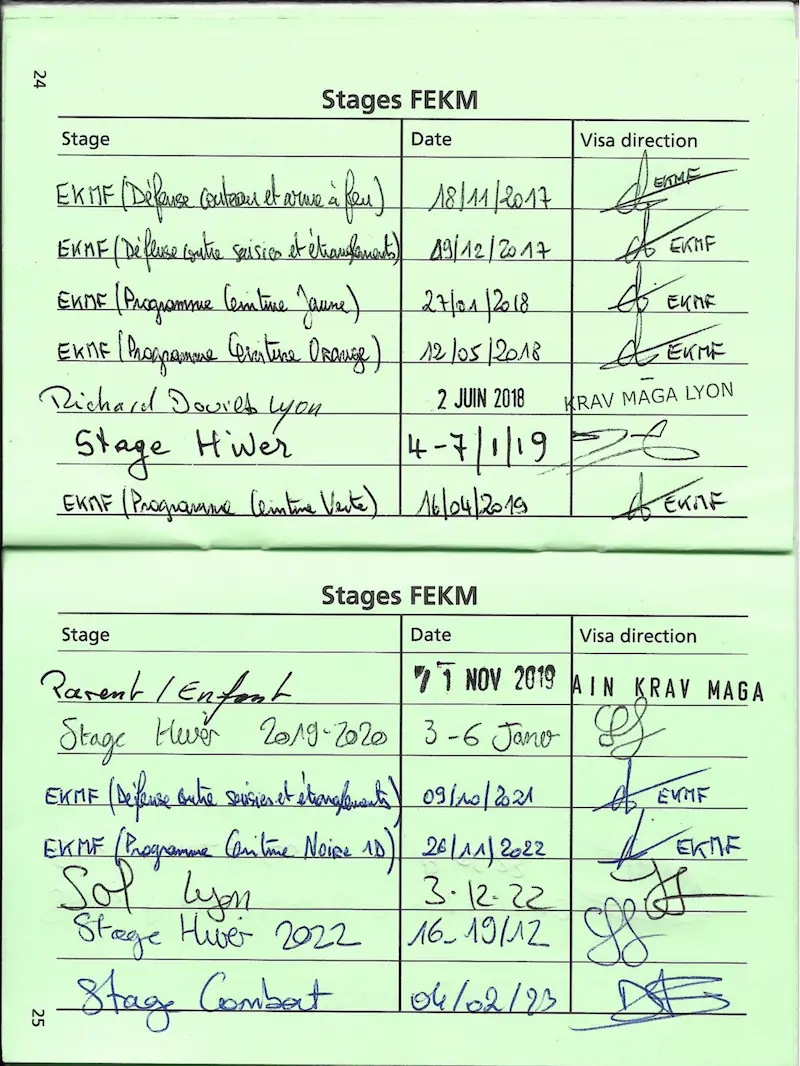 24
Stages FEKM
Stage Date Visa direction
EKMF (Défense couteau et arme à feu) 18/11/2017 EKMF
EKMF (Défense contre saisies et étranglements) 09/12/2017 EKMF
EKMF (Programme Ceinture Jaune) 27/01/2018 EKMF
EKMF (Programme Ceinture Orange) 12/05/2018 EKMF
Richard Douieb Lyon 2 JUIN 2018 KRAV MAGA LYON
Stage Hiver 4-7/1/19
EKMF (Programme Ceinture Verte) 16/04/2019 EKMF
Stages FEKM
Stage Date Visa direction
Parent / Enfant 1 NOV 2019 AIN KRAV MAGA
Stage Hiver 2019-2020 3-6 Janv
EKMF (Défense contre saisies et étranglements) 09/10/2021 EKMF
EKMF (Programme Ceinture Noire 1D) 26/11/2022 EKMF
Sol Lyon 3.12.22
Stage Hiver 2022 16-19/12
Stage Combat 04/02/23
25